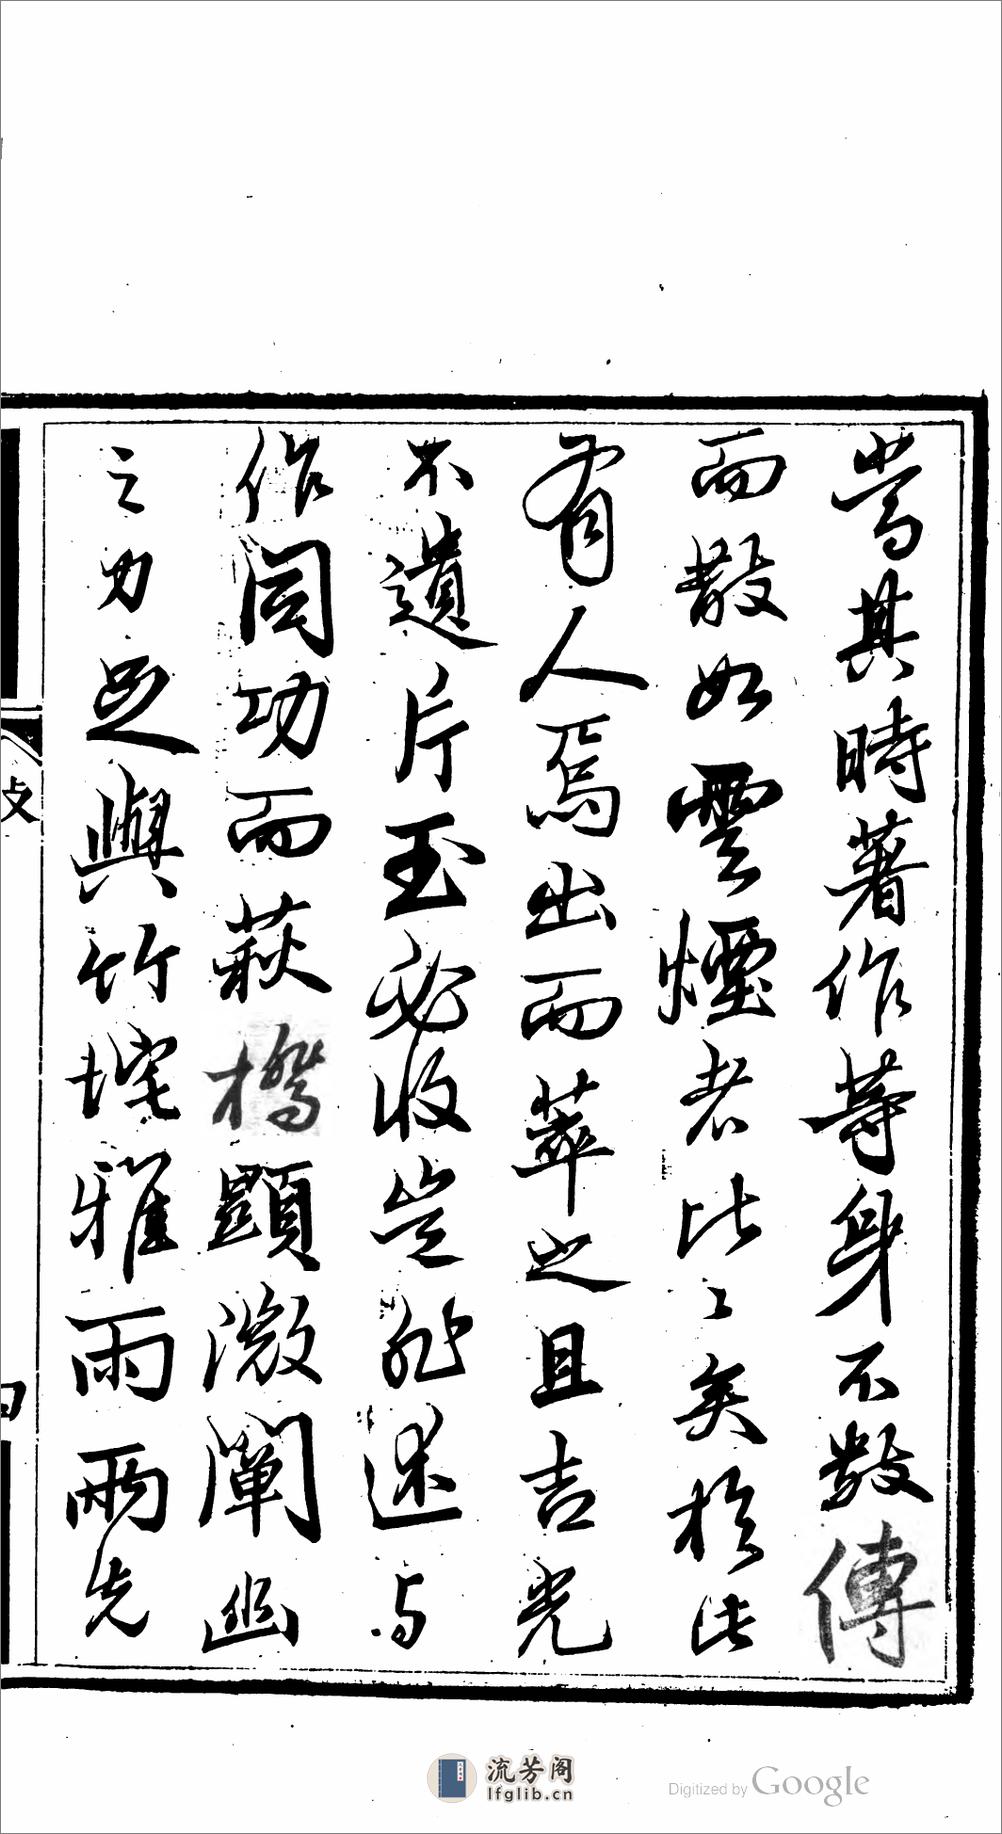 當其時著作等身不數傳
而散如雲煙者比〻矣於此
有人焉出而萃之且吉光
不遺片玉必收豈非述与
作同功而萩顯微闡幽
之力足與竹垞雅雨兩先
流芳阁
lfglib.cn
Digitized by Google